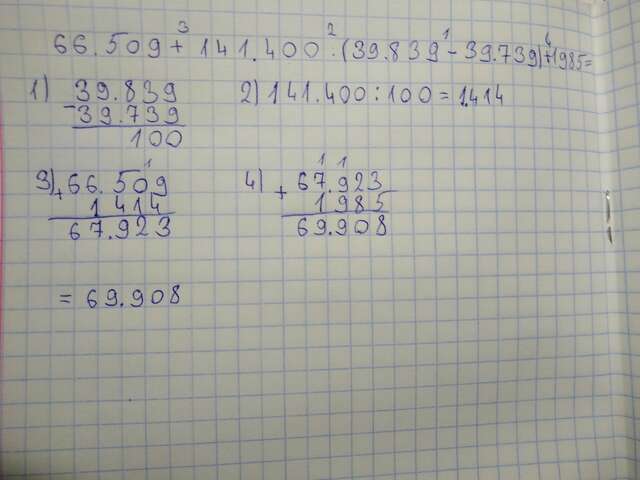 3 2 1 4
66.509 + 141.400 : (39.839 - 39.739) + 1985 =
1) 39.839 2) 141.400 : 100 = 1.414
- 39.739
100
1 1 1
3) + 66.509 4) + 67.923
1414 1985
67.923 69.908
= 69.908